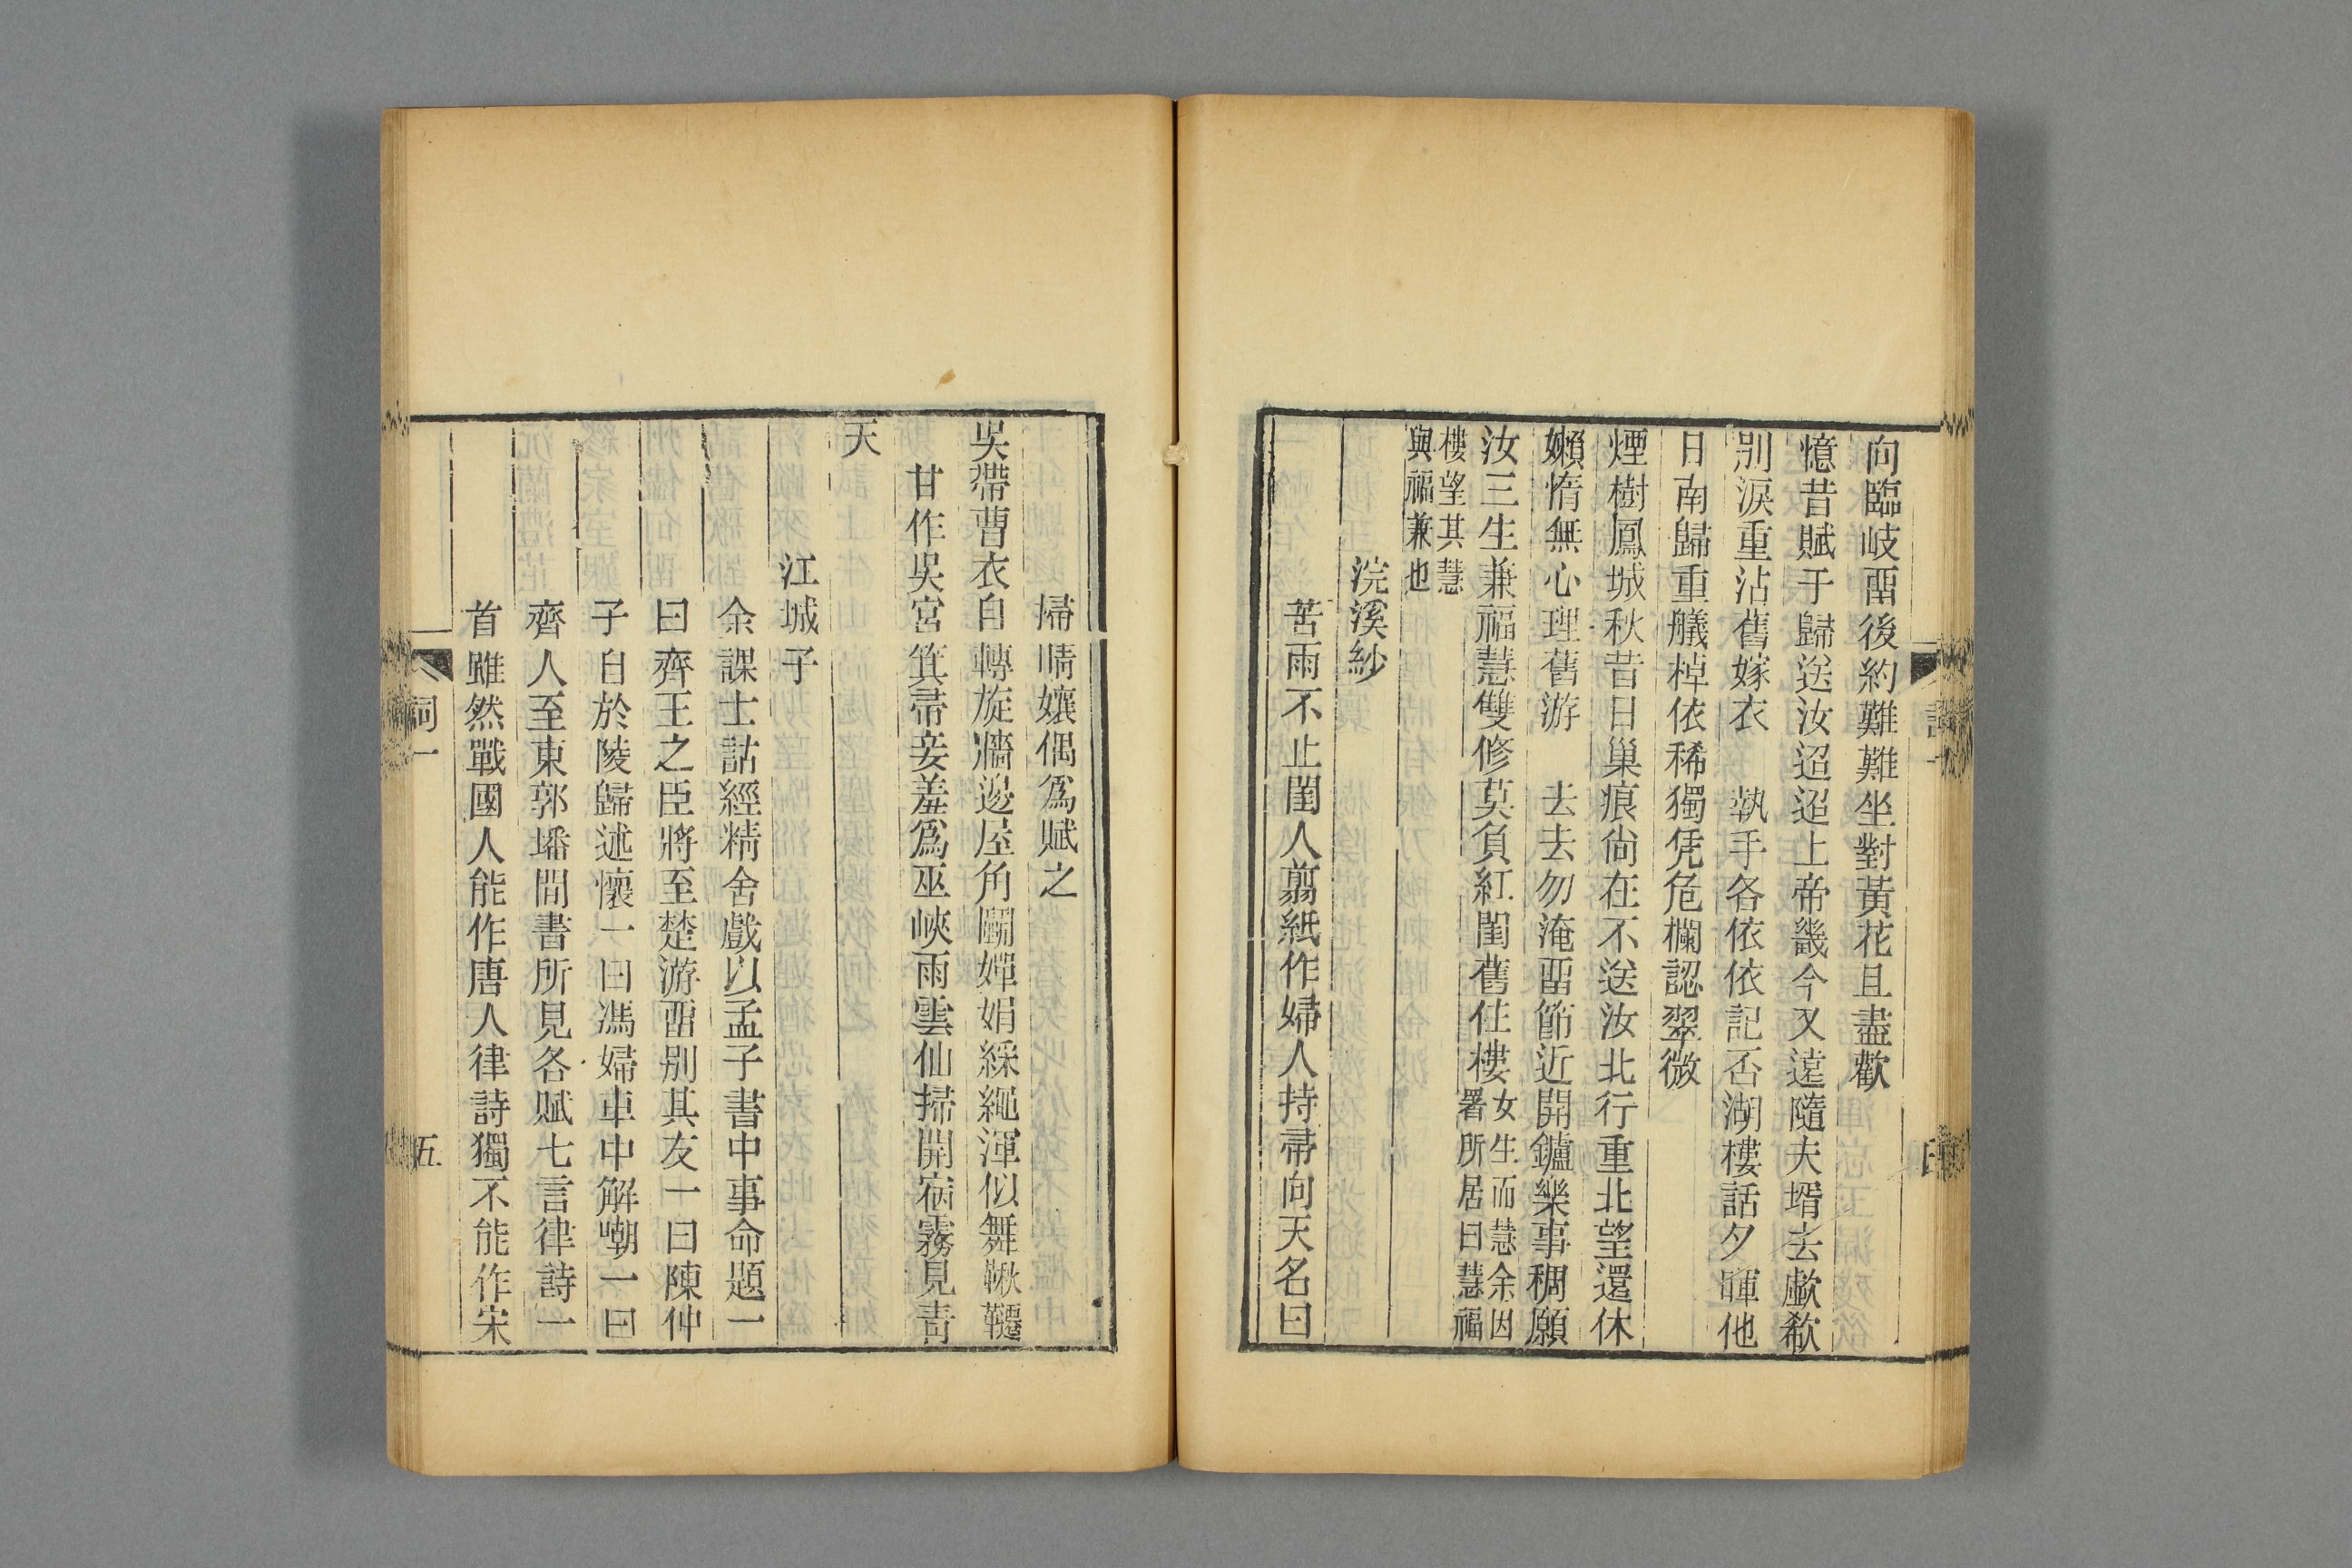 向臨岐畱後約難難坐對黃花且盡歡
憶昔賦于歸送汝迢迢上帝畿今又遠隨夫壻去歔欷
别淚重沾舊嫁衣　執手各依依記否湖樓話夕暉他
日南歸重艤棹依稀獨凭危欄認翠微
煙樹鳳城秋昔日巢痕尙在不送汝北行重北望還休
嬾惰無心理舊游　去去勿淹畱節近開鑪樂事稠願
汝三生兼福慧雙修莫負紅閨舊住樓女生而慧余因
署所居曰慧福
樓望其慧
與福兼也
浣溪紗
苦雨不止閨人翦紙作婦人持帚向天名曰
掃晴孃偶爲賦之
吳帶曹衣自轉旋牆邊屋角鬭嬋娟綵繩渾似舞鞦韆
甘作吳宮箕帚妾羞爲巫峽雨雲仙掃開宿霧見靑
天
江城子
余課士詁經精舍戲以孟子書中事命題一
曰齊王之臣將至楚游畱别其友一曰陳仲
子自於陵歸述懷一曰馮婦車中解嘲一曰
齊人至東郭墦間書所見各賦七言律詩一
首雖然戰國人能作唐人律詩獨不能作宋
詞一
五